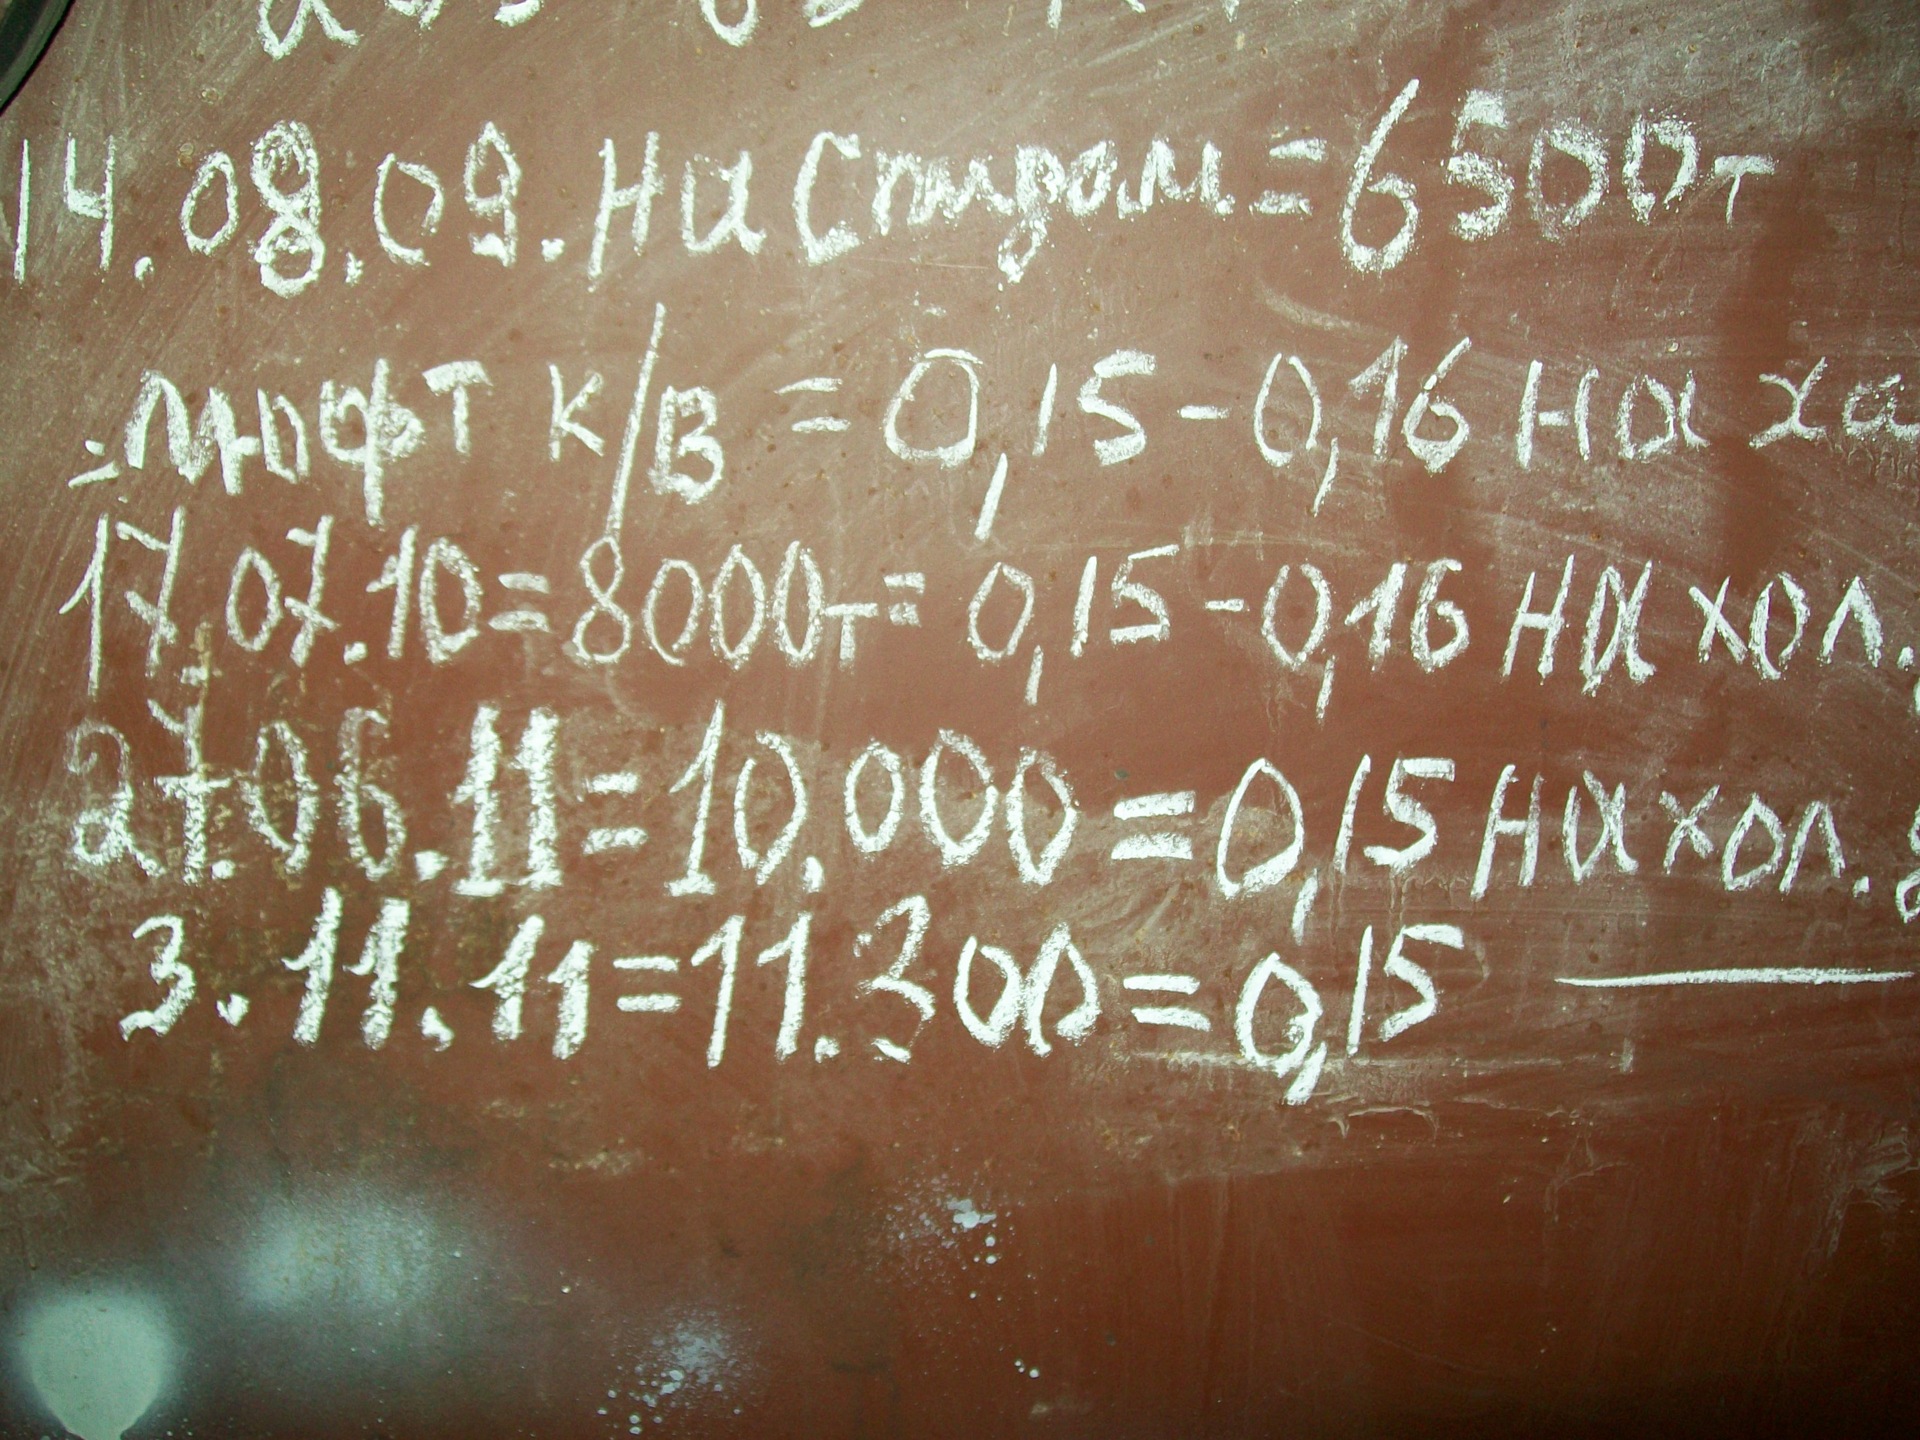 14.08.09. На Спидом. = 6500т
= люфт к/в = 0,15 - 0,16 На ха
17.07.10 = 8000т = 0,15 - 0,16 На хол.
27.06.11 = 10.000 = 0,15 На хол.
3.11.11 = 11.300 = 0,15 —